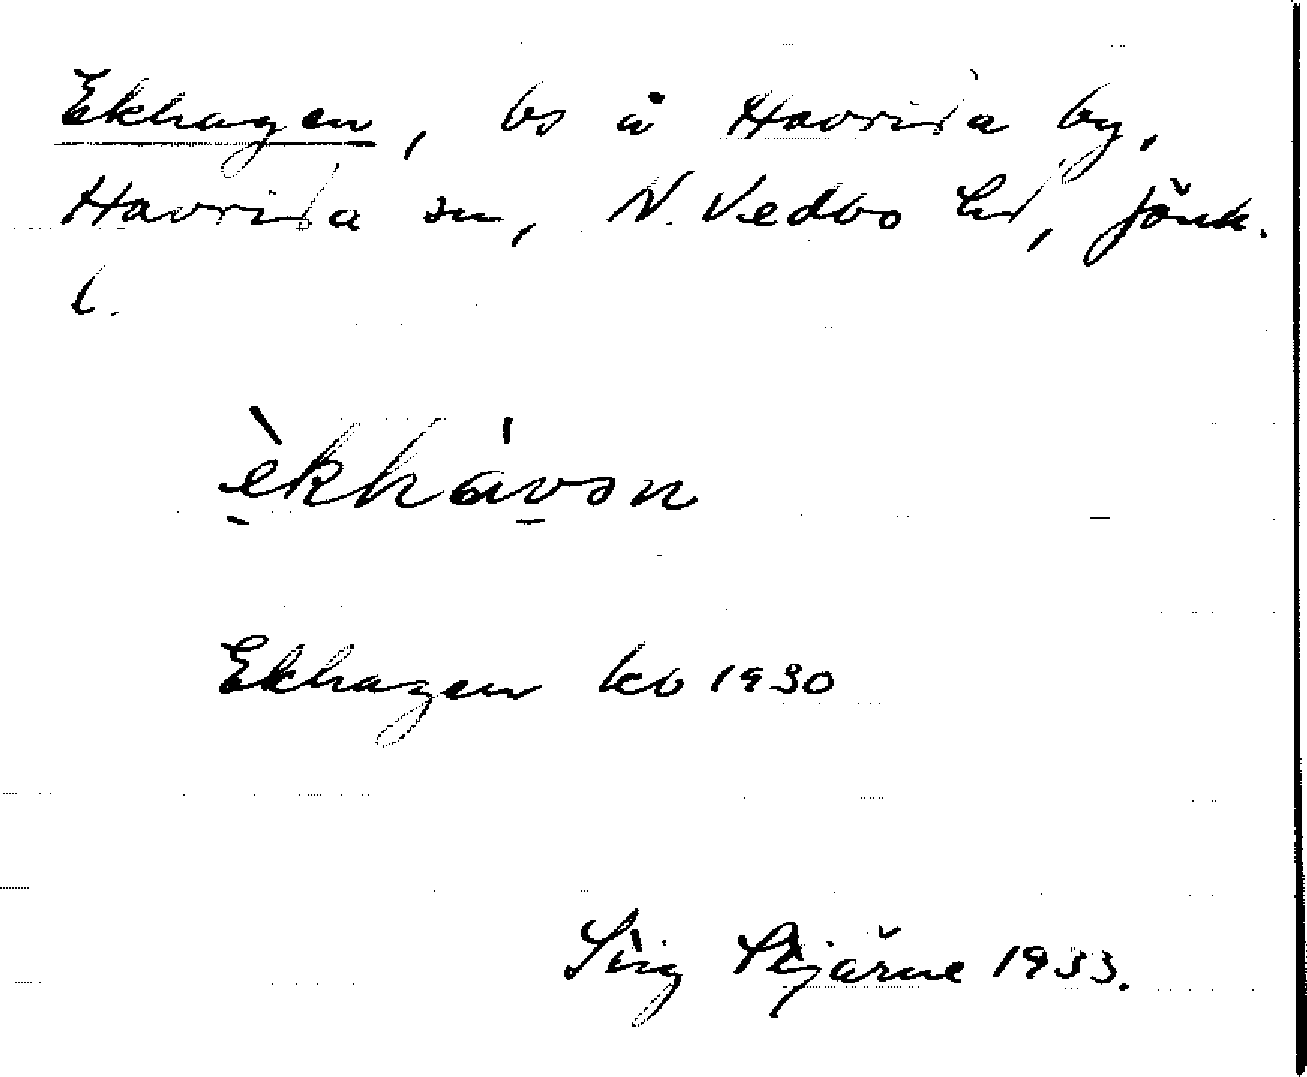 Ekhagen, bs å Haurida by,
Haurida sn, N. Vedbo hd, Jönk.
l.
èkhávən
Ekhagen kb 1930
Stig Stjärne 1933.